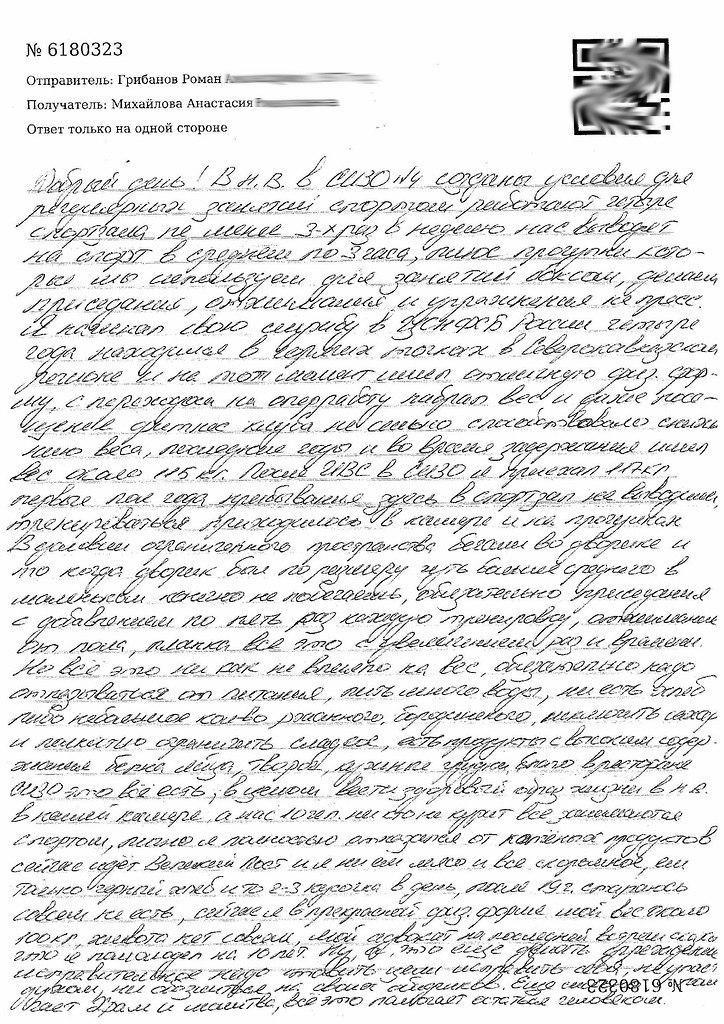 № 6180323
Отправитель: Грибанов Роман
Получатель: Михайлова Анастасия
Ответ только на одной стороне
Добрый день! В н.в. в СИЗО №4 созданы условия для
регулярных занятий спортом работают четыре
спортзала не менее 3-х раз в неделю нас выводят
на спорт в среднем по 3 часа, плюс прогулки кото-
рые мы используем для занятий боксом, делаем
приседания, отжимания и упражнения на пресс.
Я начинал свою службу в ЦСН ФСБ России четыре
года находился в горячих точках в Северокавказском
регионе и на тот момент имел отличную физ. фор-
му, с переходом на оперработу набрал вес и даже посе-
щение фитнес клуба не сильно способствовало сниже-
нию веса, последние годы и во время задержания имел
вес около 115 кг. После ИВС в СИЗО я приехал 117 кг
первые пол года пребывания здесь в спортзал не выводили,
тренироваться приходилось в камере и на прогулках
В условии ограниченного пространства бегали во дворике и
то когда дворик был по размеру чуть больше среднего в
маленьком конечно не побегаешь, обязательно приседания
с добавлением по пять раз каждую тренировку, отжимания
от пола, планка всё это с увеличением раз и времени.
Но всё это ни как не влияло на вес, обязательно надо
отказываться от питания, пить много воды, не есть хлеб
либо небольшое кол-во ржаного, бородинского, исключить сахар
и прилично ограничить сладкое, есть продукты с высоким содер-
жанием белка яйца, творог, куриные грудки, благо в ресторане
СИЗО это всё есть, в целом вести здоровый образ жизни в н.в.
в нашей камере, а нас 10 чел. ни кто не курит все занимаются
спортом, лично я полностью отказался от копчёных продуктов
сейчас идёт Великий Пост и я не ем мясо и все скоромное, ем
только чёрный хлеб и то 2-3 кусочка в день, после 19 ч. стараюсь
совсем не есть, сейчас я в прекрасной физ. форме мой вес около
100 кг, живота нет совсем, мой адвокат на последней встрече сказал
что я помолодел на 10 лет. Ну, а что ещё делать учреждение
исправительное надо ставить цели исправить себя, не упасть
духом, не обозлиться на своих Ещё
Храм и молитва, всё это помогает остаться человеком.
№ 6180323